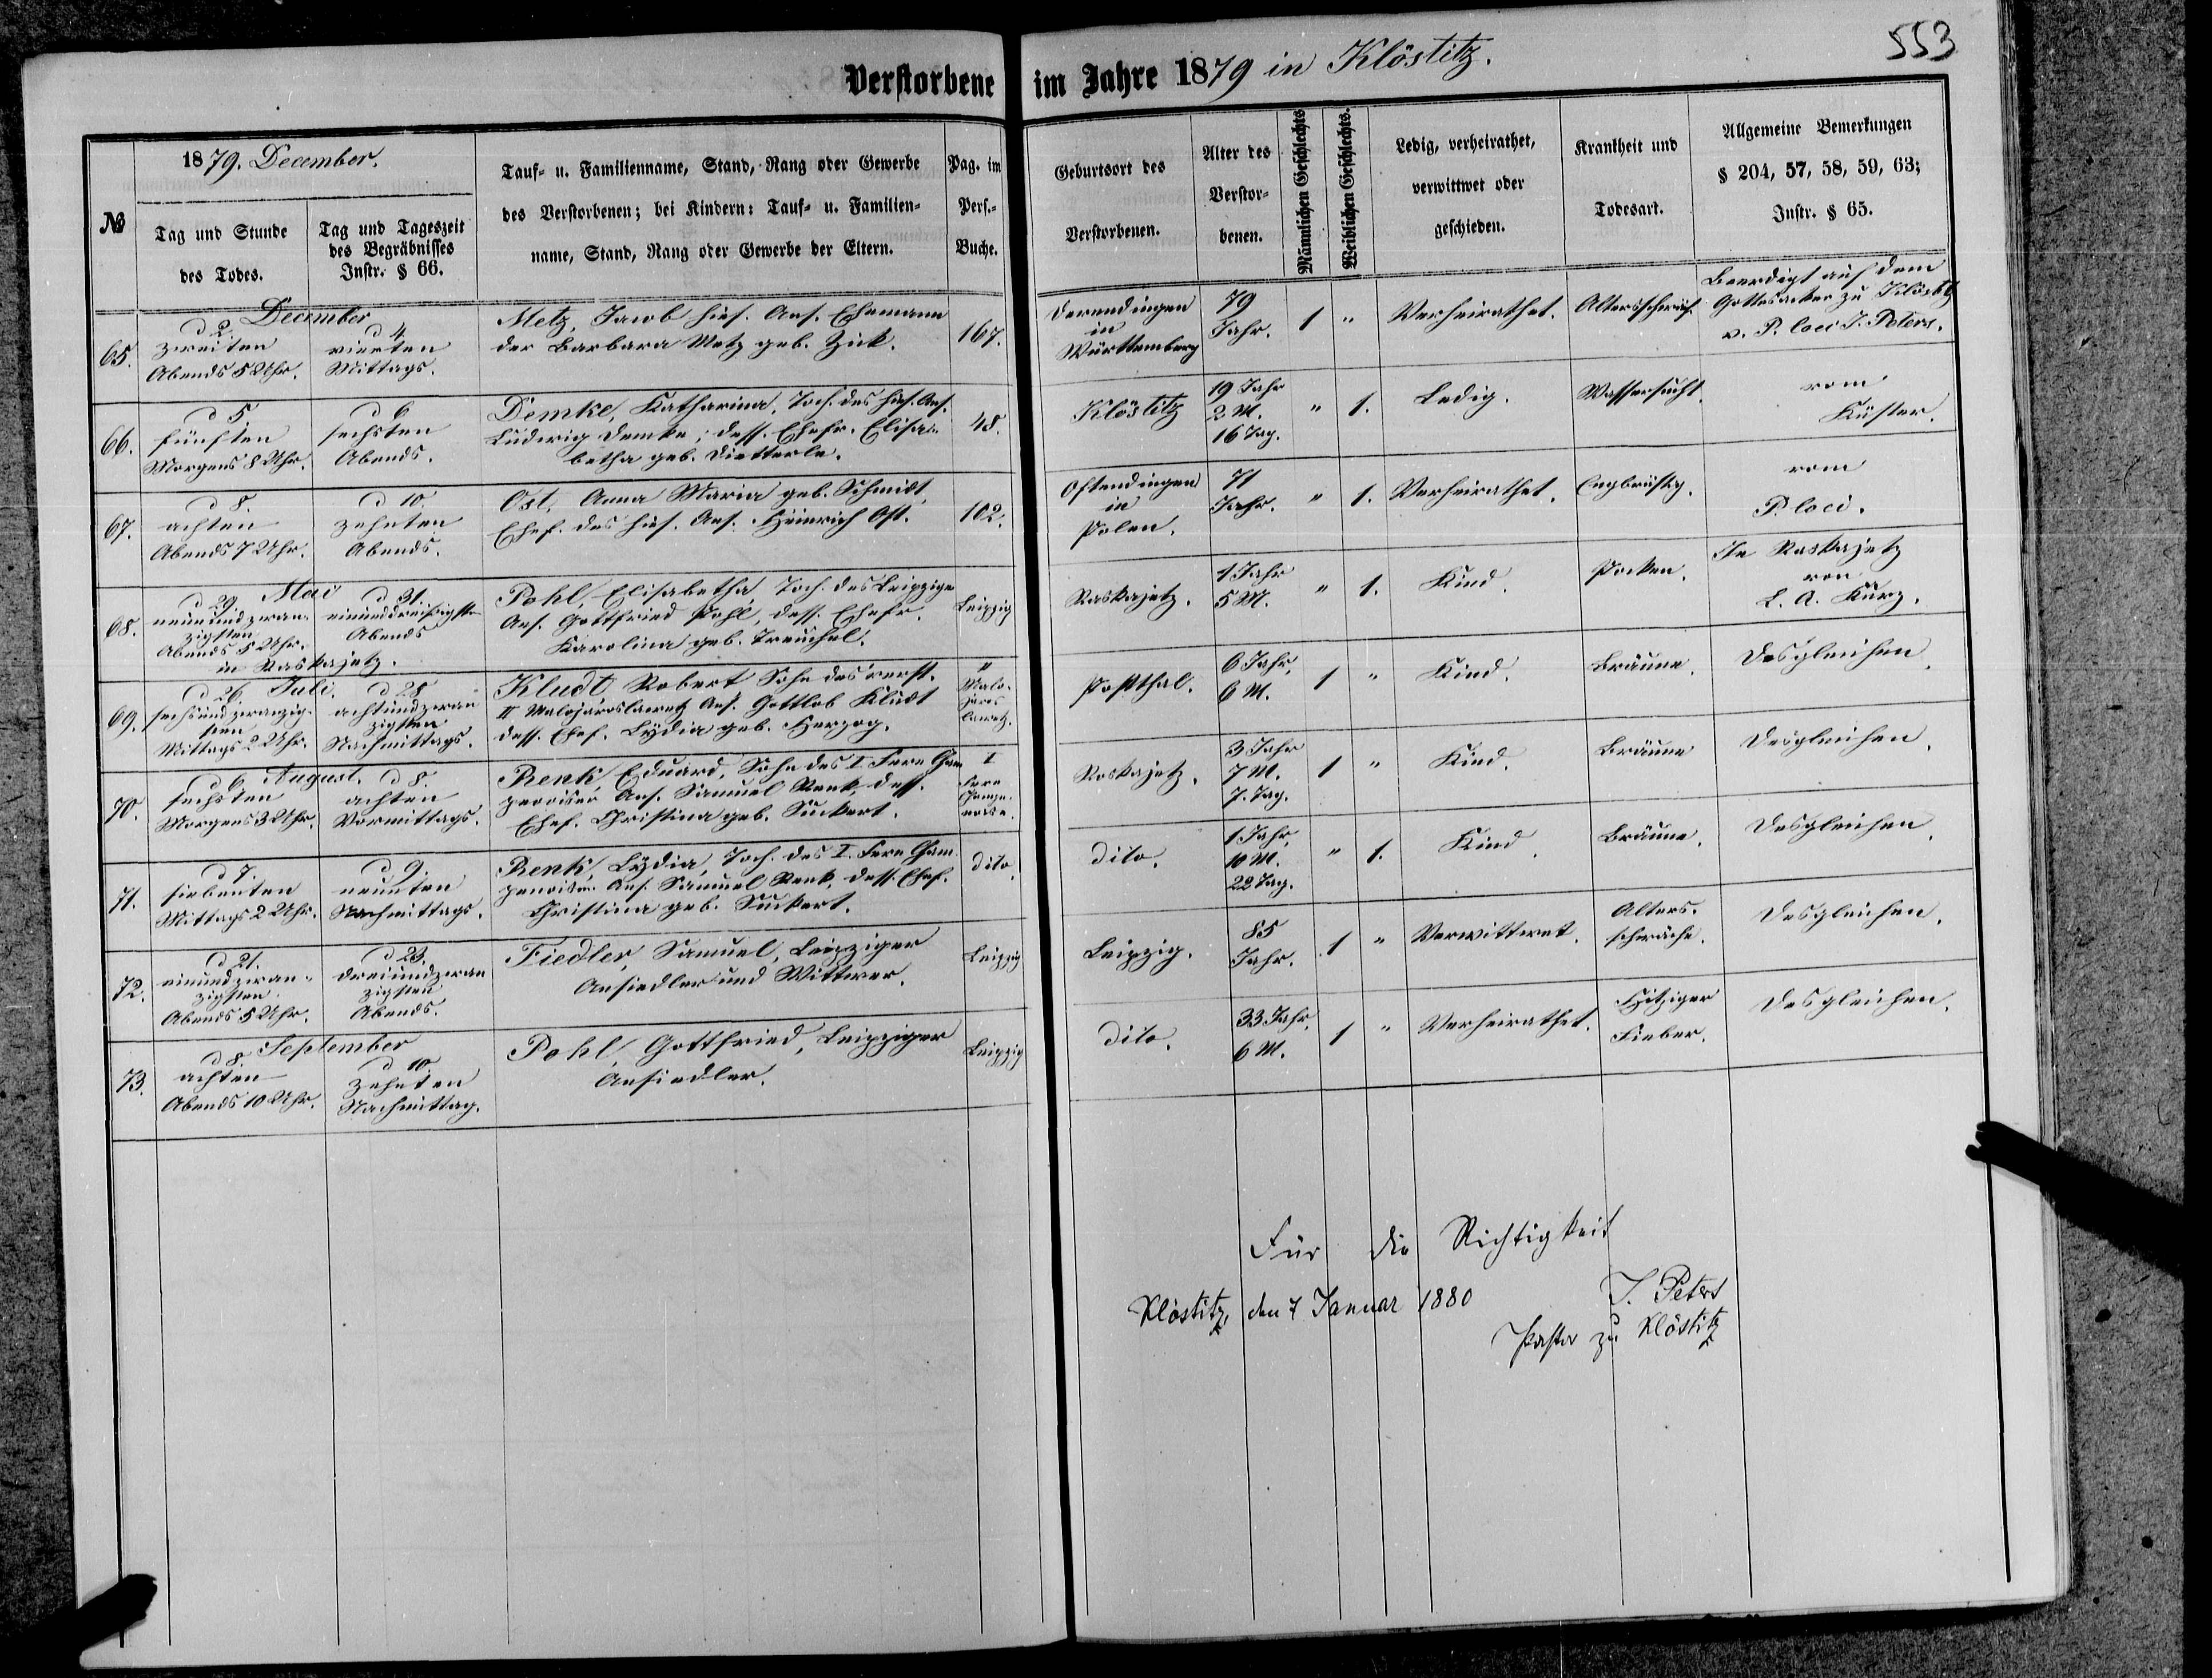 553
Verstorbene im Jahre 1879 in Klöstitz.
№
1879. December.
Tag und Stunde
des Todes.
Tag und Tageszeit
des Begräbnisses
Instr. § 66.
Tauf- u. Familienname, Stand, Rang oder Gewerbe
des Verstorbenen; bei Kindern: Tauf- u. Familien-
name, Stand, Rang oder Gewerbe der Eltern.
Pag. im
Pers.-
Buche.
Geburtsort des
Verstorbenen.
Alter des
Verstor-
benen.
Männlichen Geschlechts
Weiblichen Geschlechts.
Ledig, verheirathet,
verwittwet oder
geschieden.
Krankheit und
Todesart.
Allgemeine Bemerkungen
§ 204, 57, 58, 59, 63;
Instr. § 65.
December
65.
d 2.
zweiten
Abends 5 Uhr.
d 4.
vierten
Mittags.
Metz, Jacob hies. Ans. Ehemann
der Barbara Metz geb. Zick.
167.
Derendingen
in
Württemberg
79
Jahr.
1
"
Verheirathet.
Altersschwäch.
Beerdigt auf dem
Gottesacker zu Klöstitz
v. P. loci J. Peters.
66.
d 5.
fünften
Morgens 8 Uhr.
d 6
sechsten
Abends.
Demke, Katharina, Toch. des hies. Ans.
Ludwig Demke; dess. Ehefr. Elisa-
betha geb. Dietterle.
48.
Klöstitz
19 Jahr
2 M.
16 Tag.
"
1.
Ledig.
Wassersucht.
vom
Küster.
67.
d 8.
achten
Abends 7 Uhr.
d 10.
zehnten
Abends.
Ost, Anna Maria geb. Schmidt,
Ehef. des hies. Ans. Heinrich Ost.
102.
Ostendingen
in
Polen.
71
Jahr.
"
1.
Verheirathet.
Engbrüstig.
vom
P. loci.
Mai
68.
d 29.
neunundzwan-
zigsten
Abends 5 Uhr.
in Raskajetz.
d 31.
einunddreißigsten
Abends
Pohl, Elisabetha, Toch. des Leipziger
Ans. Gottfried Pohl, dess. Ehefr.
Karolina geb. Treichel.
Leipzig
Raskajetz.
1 Jahr
5 M.
"
1.
Kind.
Pocken.
In Raskajetz
von
L. A. Kurz.
Juli.
69.
d 26.
sechsundzwanzig-
sten
Mittags 2 Uhr.
d 28
achtundzwan
zigsten
Nachmittags.
Kludt Robert Sohn des verst.
II Malojaroslawetz Ans. Gottlob Kludt
dess. Ehef. Lydia geb. Herzog.
II
Malo-
jaros
lawetz.
Postthal.
6 Jahr,
6 M.
1
"
Kind.
Bräune.
Desgleichen.
August.
70.
d 6.
sechsten
Morgens 3 Uhr.
d 8.
achten
Vormittags.
Renk, Eduard, Sohn des I. Fere Cham
penoiser Ans. Samuel Renk, dess.
Ehef. Christina geb. Suckert.
I
Fere
Champe-
noise.
Raskajetz.
3 Jahr
7 M.
7. Tag.
1
"
Kind.
Bräune
Desgleichen.
71.
d 7.
siebenten
Mittags 2 Uhr.
d 9.
neunten
Nachmittags.
Renk, Lydia, Toch. des I. Fere Cham
penoiser Ans. Samuel Renk, dess. Ehef.
Christina geb. Suckert.
dito.
dito.
1 Jahr,
10 M.
22 Tag.
"
1.
Kind.
Bräune.
Desgleichen.
72.
d 21.
einundzwan-
zigsten
Abends 5 Uhr.
d 23.
dreiundzwan
zigsten
Abends.
Fiedler, Samuel, Leipziger
Ansiedler und Wittwer.
Leipzig
Leipzig.
85
Jahr.
1
"
Verwittwet.
Alters-
schwäche.
Desgleichen.
September
73.
d 8.
achten
Abends 10 Uhr.
d 10.
zehnten
Nachmittag.
Pohl, Gottfried, Leipziger
Ansiedler.
Leipzig
dito.
33 Jahr,
6 M.
1
"
Verheirathet.
Hitziger
Fieber.
Desgleichen.
Für die Richtigkeit
Klöstitz, den 7 Januar 1880
J. Peters
Pastor zu Klöstitz